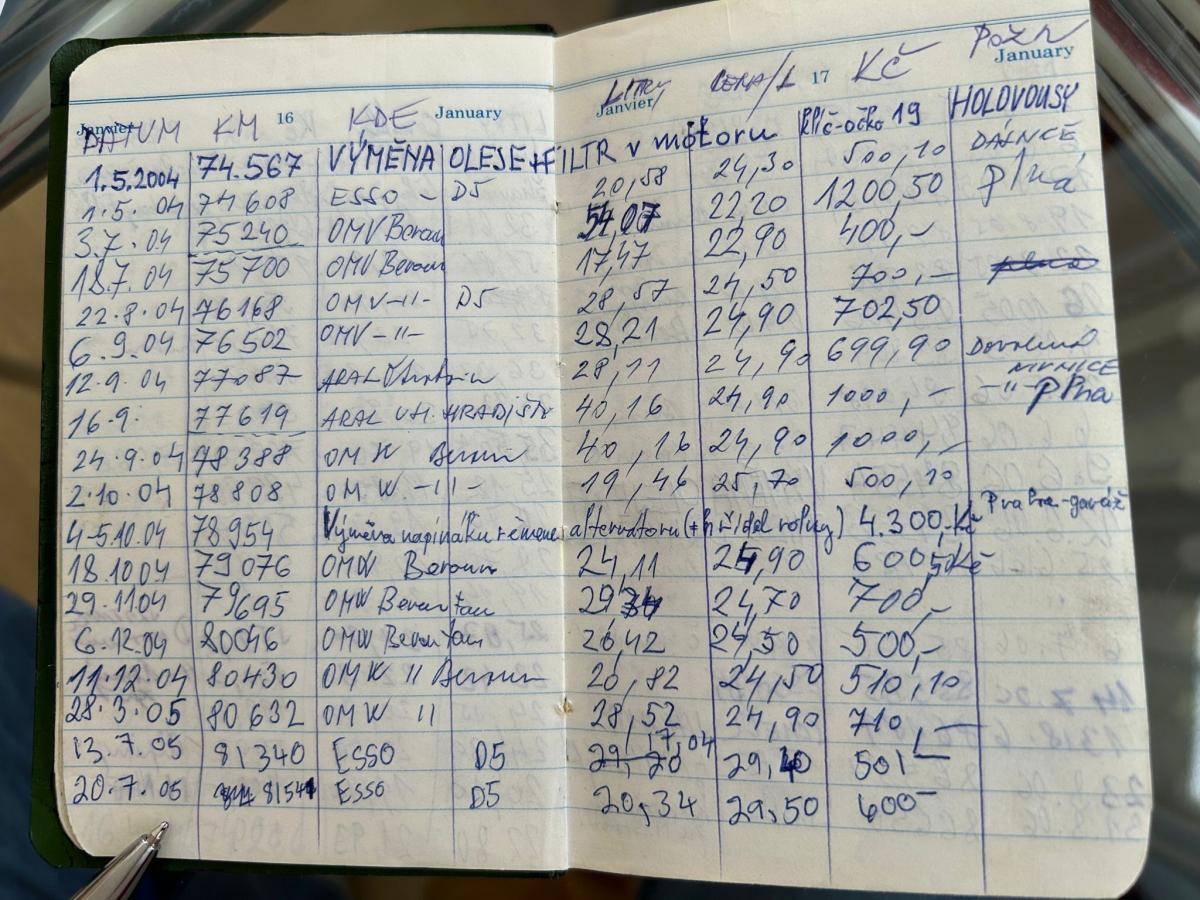 Janvier 16 January
DATUM KM KDE
Janvier 17 January
LITRY CENA/L KČ POZN
1.5.2004 74.567 VÝMĚNA OLEJE+FILTR v motoru Klíč-očko 19 HOLOVOUSY
1.5.04 74608 ESSO - D5 20,58 24,30 500,10 DÁLNICE
3.7.04 75240 OMV Beroun 54,07 22,20 1200,50 plná
18.7.04 75700 OMV Beroun 17,47 22,90 400,-
22.8.04 76168 OMV -11- D5 28,57 24,50 700,-
6.9.04 76502 OMV -11- 28,21 24,90 702,50
12.9.04 77087 ARAL 28,11 24,90 699,90 Dovolená
16.9. 77619 ARAL UH. HRADIŠTĚ 40,16 24,90 1000,- -11- plná
24.9.04 98388 OMW Beroun 40,16 24,90 1000,-
2.10.04 78808 OM.W. -11- 19,46 25,70 500,10
4-5.10.04 78954 Výměna napínáku řemene alternátoru (+hřídel rolny) 4.300,-Kč Praha-garáž
18.10 04 79076 OMW Beroun 24,11 24,90 600,5Kč
29.11 04 79695 OMW Beroun tan 29,34 24,70 700,-
6.12.04 80046 OMW Beroun tan 20,42 24,50 500,-
11.12.04 80430 OMW 11 Beroun 20,82 24,50 510,10
28.3.05 80632 OMW 11 28,52 24,90 710,-
13.7.05 81340 ESSO D5 29,20 17,04 29,40 501-
20.7.05 81541 ESSO D5 20,34 29,50 600-